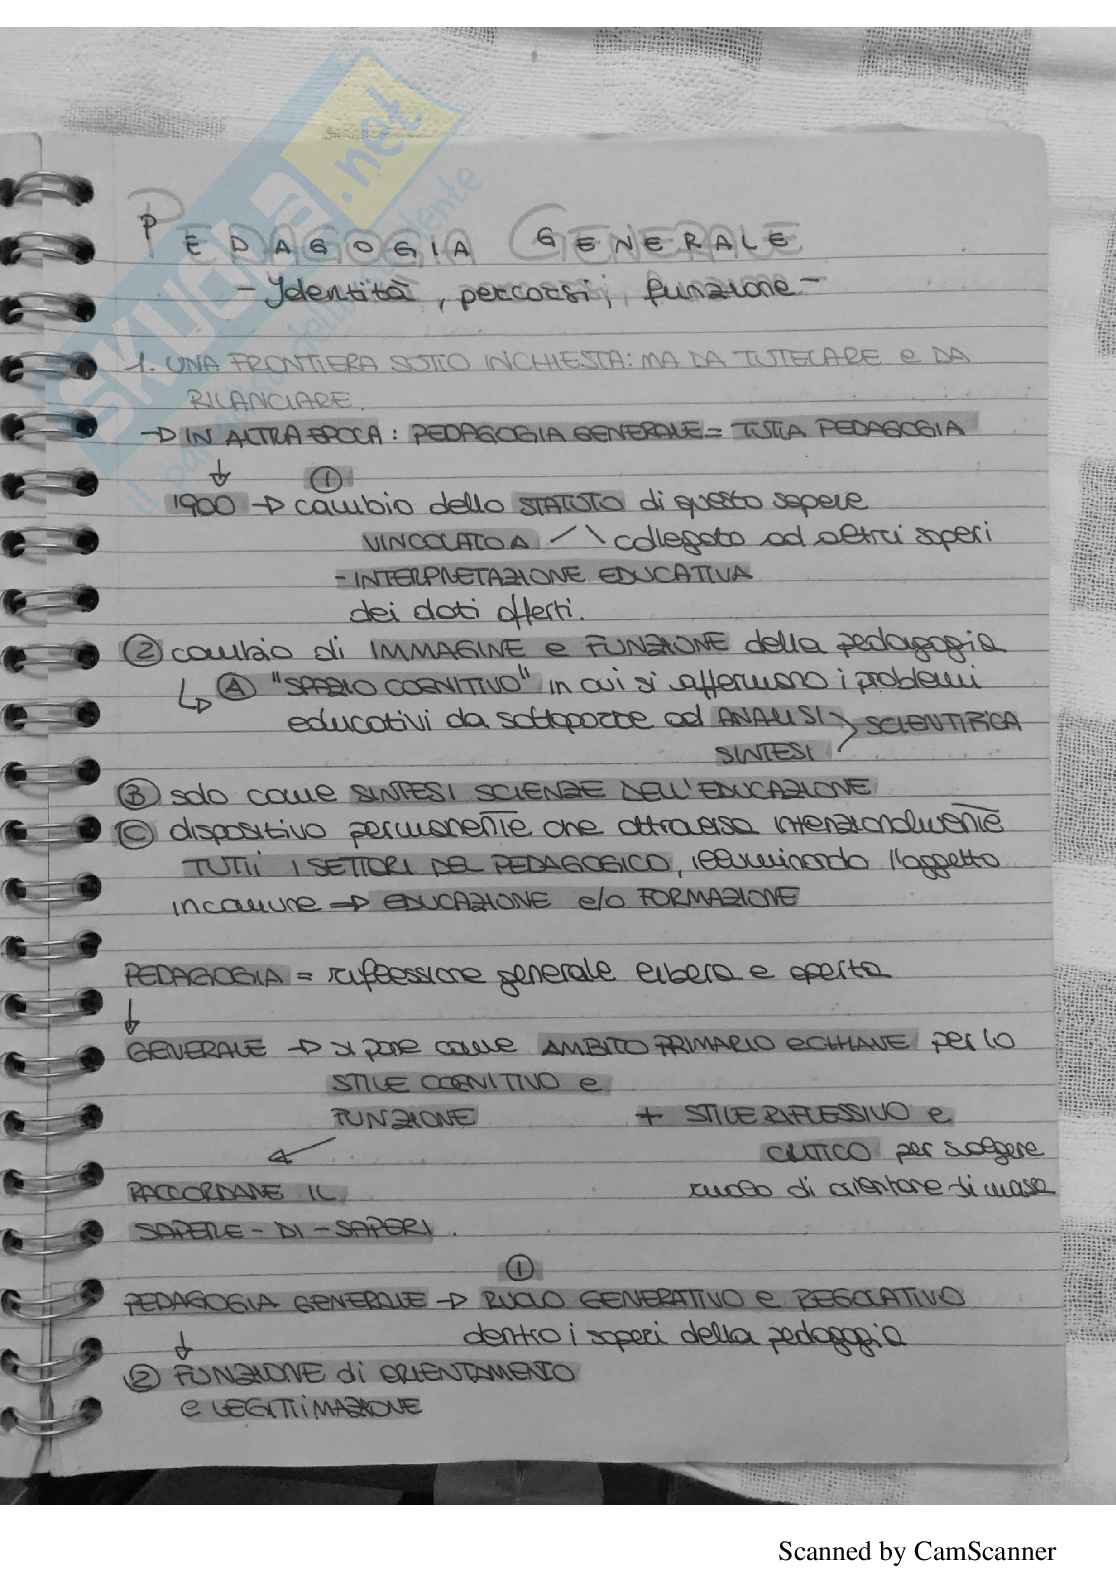 PEDAGOGIA GENERALE
- Identità, percorsi, funzione -
1. UNA FRONTIERA SOTTO INCHIESTA: MA DA TUTELARE e DA
RILANCIARE.
→ IN ALTRA EPOCA: PEDAGOGIA GENERALE = TUTTA PEDAGOGIA
↓ ①
1900 → cambio dello STATUTO di questo sapere
VINCOLATO A collegato ad altri saperi
- INTERPRETAZIONE EDUCATIVA
dei dati offerti.
② cambio di IMMAGINE e FUNZIONE della pedagogia
↳ Ⓐ "SPAZIO COGNITIVO" in cui si affermano i problemi
educativi da sottoporre ad ANALISI SCIENTIFICA
SINTESI
Ⓑ solo come SINTESI SCIENZE DELL'EDUCAZIONE
Ⓒ dispositivo permanente che attraversa intenzionalmente
TUTTI I SETTORI DEL PEDAGOGICO, l'oggetto
in comune → EDUCAZIONE e/o FORMAZIONE
PEDAGOGIA = riflessione generale libera e aperta
↓
GENERALE → si pone come AMBITO PRIMARIO e CHIAVE per lo
STILE COGNITIVO e
FUNZIONE + STILE RIFLESSIVO e
CRITICO per svolgere
RACCORDARE IL ruolo di orientare
SAPERE - DI - SAPERI.
①
PEDAGOGIA GENERALE → RUOLO GENERATIVO e REGOLATIVO
↓ dentro i saperi della pedagogia
② FUNZIONE di ORIENTAMENTO
e LEGITTIMAZIONE
SKUOLA.net
Scanned by CamScanner